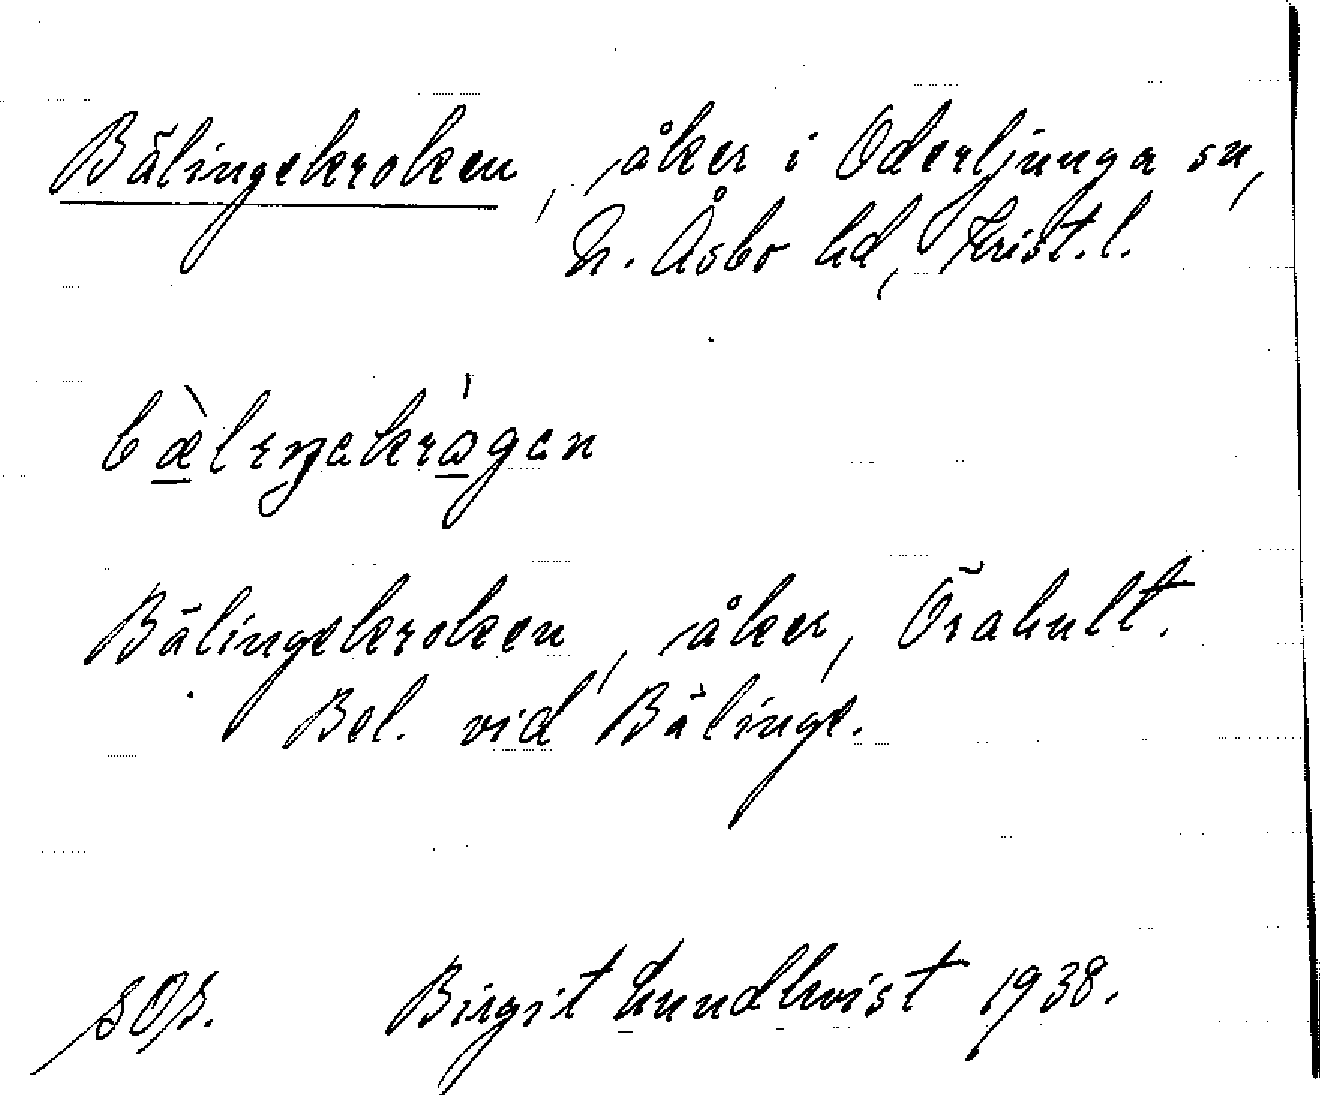 Bälingekroken, åker i Oderljunga sn,
N. Åsbo hd, Krist. l.
Bälingekroken, åker, Örahult.
Bel. vid Bälinge.
SOS. Birgit Lundkvist 1938.